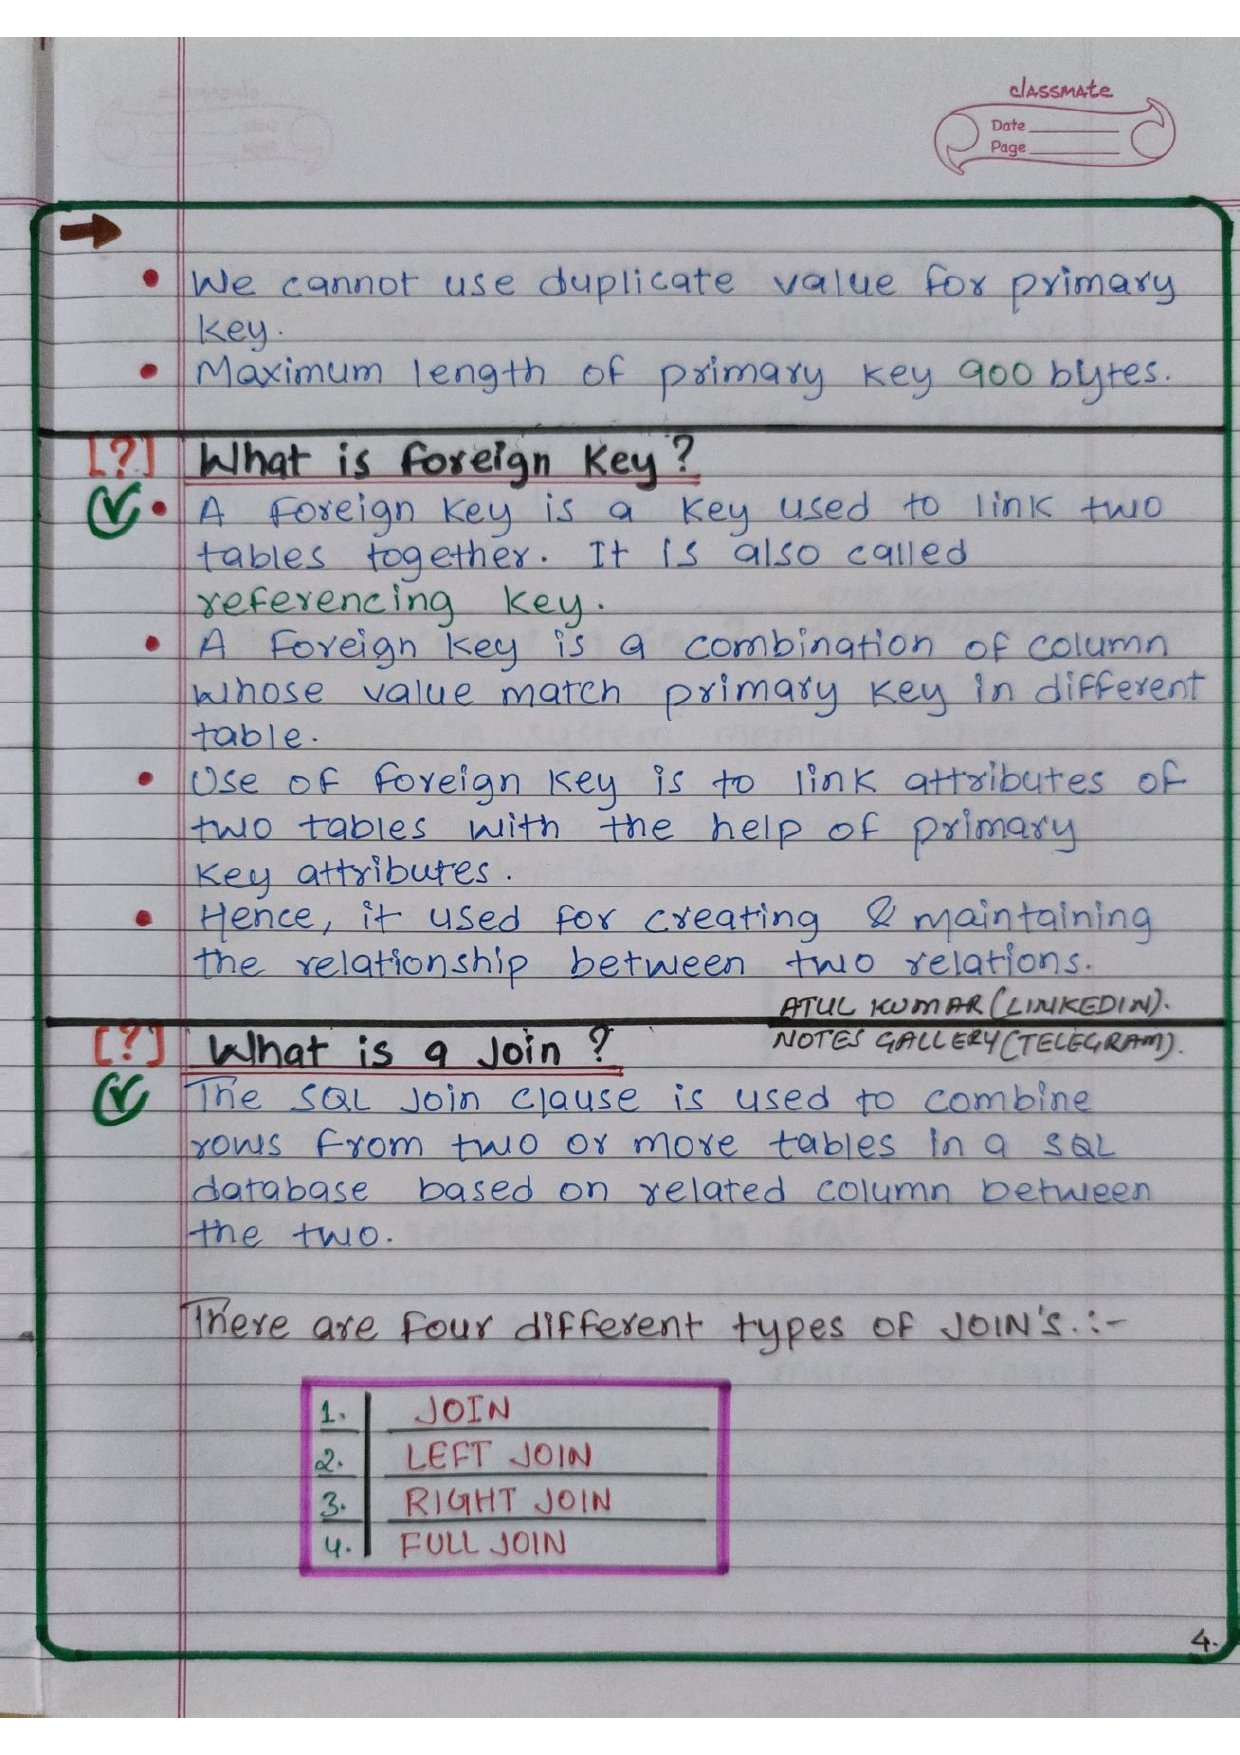 classmate
Date
Page
We cannot use duplicate value for primary
key.
Maximum length of primary key 900 bytes.
[?] What is foreign Key?
A foreign key is a key used to link two
tables together. It is also called
referencing key.
A Foreign key is a combination of column
whose value match primary key in different
table.
Use of foreign key is to link attributes of
two tables with the help of primary
key attributes.
Hence, it used for creating & maintaining
the relationship between two relations.
ATUL KUMAR (LINKEDIN).
NOTES GALLERY (TELEGRAM).
[?] What is a Join?
The SQL Join clause is used to combine
rows from two or more tables in a SQL
database based on related column between
the two.
There are four different types of JOIN'S.:-
1. JOIN
2. LEFT JOIN
3. RIGHT JOIN
4. FULL JOIN
4.